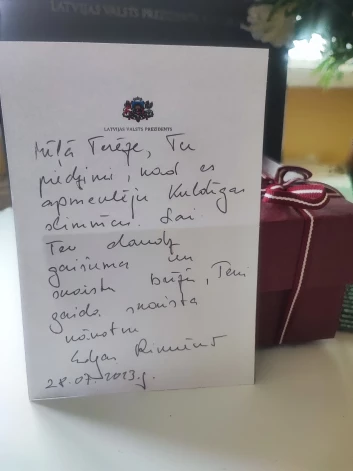 LATVIJAS VALSTS PREZIDENTS
LATVIJAS VALSTS PREZIDENTS
Mīļā Terēze, Tu
piedzimi, kad es
apmeklēju Kuldīgas
slimnīcu. Lai
Tev daudz
gaišuma un
skaistu brīžu, Tevi
gaida skaista
nākotne
Edgars Rinkēvičs
28.07.2023.g.